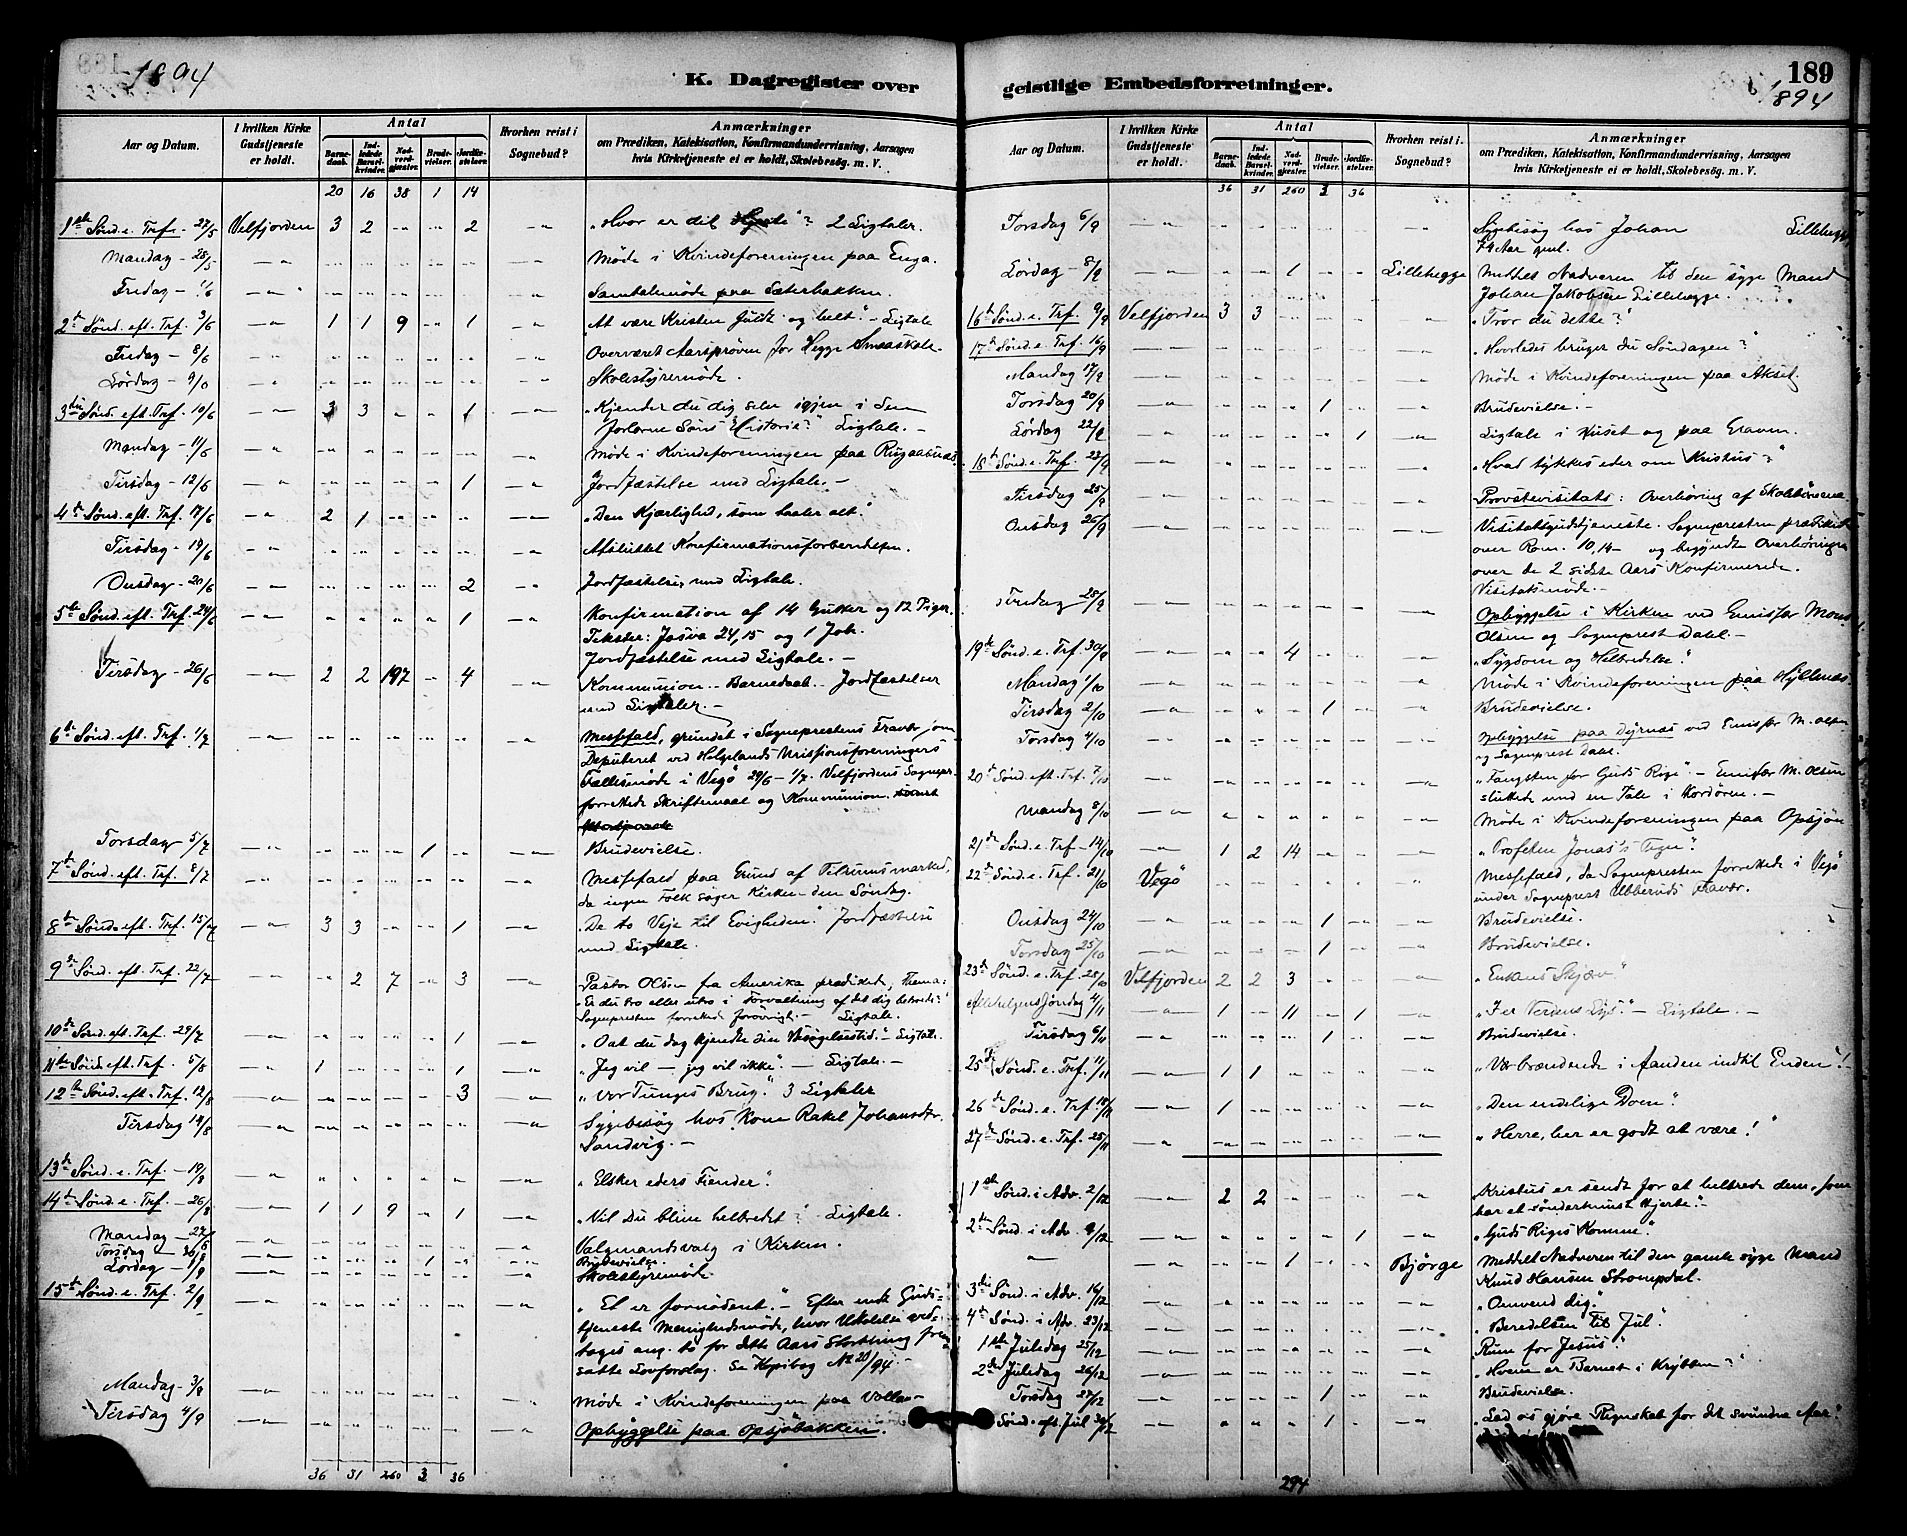 1894
K. Dagregister over
Aar og Datum.
I hvilken Kirke Gudstjeneste er holdt.
Antal
Barne-daab.
Ind-ledede Barsel-kvinder.
Nad-verd-gjester.
Brude-vielser.
Jordfæ-stelser.
Hvorhen reist i Sognebud?
Anmærkninger
om Prædiken, Katekisation, Konfirmandundervisning, Aarsagen
hvis Kirketjeneste ei er holdt, Skolebesøg. m. V.
20 16 38 1 14
1ste Sønd. e. Tref. 27/5 Velfjorden 3 2 2 „Hvor er dit Hjerte"? 2 Ligtaler.
Mandag 28/5 Møde i Kvindeforeningen paa Enga.
Fredag 1/6 Samtalemøde paa Sæterbakken.
2den Sønd. eft. Tref. 3/6 1 1 9 1 „At være Kristen fuldt og helt" - Ligtale
Fredag 8/6 Overværet Aarsprøven for Hegge Smaaskole.
Lørdag 9/6 Skolestyremøde.
3die Sønd. eft. Tref. 10/6 3 3 1 „Kjender du dig selv igjen i den
forlorne Søns Historie?" Ligtale. -
Mandag - 11/6 Møde i Kvindeforeningen paa
Tirsdag - 12/6 1 Jordfæstelse med Ligtale. -
4de Sønd. eft. Tref. 17/6 2 1 „Den Kjærlighed, som taaler alt."
Tirsdag - 19/6 Afsluttet Konfirmationsforberedelsen.
Onsdag - 20/6 2 Jordfæstelser med Ligtale.
5te Sønd. eft. Tref. 24/6 1 Konfirmation af 14 Gutter og 12 Piger.
Tekster: Josva 24,15 og 1 Joh.
Jordfæstelse med Ligtale. -
Tirsdag - 26/6 2 2 197 4 Kommunion - Barnedaab - Jordfæstelser
med Ligtaler. -
6te Sønd. eft. Tref. 1/7 Messefald, grundet i Sogneprestens Fravær, som
Deputeret ved Helgelands Missionsforeningers
Fællesmøde i Vegø 29/6 - 1/7. Velfjordens Sognepr.
forrettede Skriftemaal og Kommunion
Torsdag 5/7 1 Brudevielse.
7de Sønd. eft. Tref. 8/7 Messefald paa Grund af Tilrumsmarked,
da ingen Folk søger Kirken den Søndag.
8de Sønd. eft. Tref. 15/7 3 3 1 „De to Veje til Evigheden." Jordfæstelse
med Ligtale.
9de Sønd. eft. Tref. 22/7 2 7 3 Pastor Olsen fra Amerika prædiket, Thema:
„Er du tro eller utro i Forvaltning af det dig betroede?"
Sognepresten forrettede forøvrigt. - Ligtale.
10de Sønd. eft. Tref. 29/7 1 „O at du dog kjendte din Besøgelsestid." - Ligtale.
11te Sønd. eft. Tref. 5/8 1 1 „Jeg vil - jeg vil ikke." - Ligtale -
12te Sønd. eft. Tref. 12/8 3 „Vor Tunges Brug." 3 Ligtaler
Tirsdag 14/8 Sygebesøg hos Kone Rakel Johansdtr.
Sandvig. -
13de Sønd. e. Tref. - 19/8 „Elsker eders Fiender."
14de Sønd. e. Tref. - 26/8 1 1 9 1 „Vil Du blive helbredet"? Ligtale.
Mandag - 27/8 Valgmandsvalg i Kirken.
Torsdag - 30/8 1 Brudevielse.
Lørdag - 1/9 Skolestyremøde.
15de Sønd. e. Tref. 2/9 „Et er fornødent." - Efter endt Guds-
tjeneste Menighedsmøde, hvor Udtalelse ved-
toges ang. to for dette Aars Storthing frem-
satte Lovforslag. Se Kopibog No 20/94. -
Mandag - 3/9 Møde i Kvindeforeningen paa
Tirsdag 4/9 Opbyggelse paa Opsjøbakken.
36 31 260 3 36
189
1894
geistlige Embedsforretninger.
Aar og Datum.
I hvilken Kirke Gudstjeneste er holdt.
Antal
Barne-daab.
Ind-ledede Barsel-kvinder.
Nad-verd-gjester.
Brude-vielser.
Jordfæ-stelser.
Hvorhen reist i Sognebud?
Anmærkninger
om Prædiken, Katekisation, Konfirmandundervisning, Aarsagen
hvis Kirketjeneste ei er holdt, Skolebesøg. m. V.
36 31 260 3 36
Torsdag 6/9 Sygebesøg hos Johan Lillehegge
74 Aar gml.
Lørdag - 8/9 1 Lillehegge Meddelt Nadveren til den syge Mand
Johan Jakobsen Lillehegge.
16de Sønd. e. Tref. 9/9 Velfjorden 3 3 „Tror du dette?"
17de Sønd. e. Tref. 16/9 „Hvorledes bruger du Søndagen"?
Mandag 17/9 Møde i Kvindeforeningen paa Aksel.
Torsdag 20/9 1 Brudevielse. -
Lørdag 22/9 1 Ligtale i Huset og paa Graven.
18de Sønd. e. Tref. 23/9 „Hvad tykkes eder om Kristus?"
Tirsdag 25/9 Provstevisitats: Overhøring af Skolebørnene.
Onsdag 26/9 Visitatsgudstjeneste. Sognepresten prædiket
over Rom. 10,14 - og begyndte Overhøringen
over de 2 sidste Aars Konfirmerede.
Visitatsmøde.
Fredag 28/9 Opbyggelse i Kirken ved Emissær Mons
Olsen og Sogneprest Dahl. -
19de Sønd. e. Tref. 30/9 4 „Sygdom og Helbredelse."
Mandag 1/10 Møde i Kvindeforeningen paa Hyllenæs.
Tirsdag 2/10 1 Brudevielse.
Torsdag 4/10 Opbyggelse paa Dejrnæs ved Emissær M. Olsen
og Sogneprest Dahl.
20de Sønd. eft. Tref. 7/10 „Fangsten for Guds Rige." - Emissær M. Olsen
sluttede med en Tale i Kordøren. -
Mandag 8/10 Møde i Kvindeforeningen paa Opsjøn
21de Sønd. e. Tref. - 14/10 1 2 14 „Profeten Jonas's Tegn".
22de Sønd. e. Tref. 21/10 Vegø Messefald, da Sognepresten forrettede i Vegø
under Sogneprest Fravær.
Onsdag 24/10 1 Brudevielse.
Torsdag 25/10 1 Brudevielse.
23de Sønd. e. Tref. 28/10 Velfjorden 2 2 3 „Enkens Skjærv"
Allehelgens Søndag 4/11 1 11 1 „I er Verdens Lys." - Ligtale. -
Tirsdag 6/11 1 Brudevielse.
25de Sønd. e. Tref. 11/11 1 1 „Vær brændende i Aanden indtil Enden"!
26de Sønd. e. Tref. 18/11 1 „Den endelige Dom".
27de Sønd. e. Tref. 25/11 „Herre, her er godt at være!"
1ste Sønd. i Adv. 2/12 2 2 Kristus er sendt for at helbrede dem, som
har et sønderknust Hjerte. -
2den Sønd. i Adv. 9/12 1 „Guds Riges Komme".
1 Bjørge Meddelt Nadveren til den gamle syge Mand
Knud Hansen Strompdal.
3die Sønd. i Adv. 16/12 „Omvend dig."
4de Sønd. i Adv. 23/12 „Beredelsen til Jul."
1ste Juledag 25/12 „Rum for Jesus".
2den Juledag 26/12 „Hvem er Barnet i Krybben?"
Torsdag 27/12 1 Brudevielse.
Sønd. eft. Jul 30/12 1 „Lad os gjøre Regnskab for det svundne Aar"
294